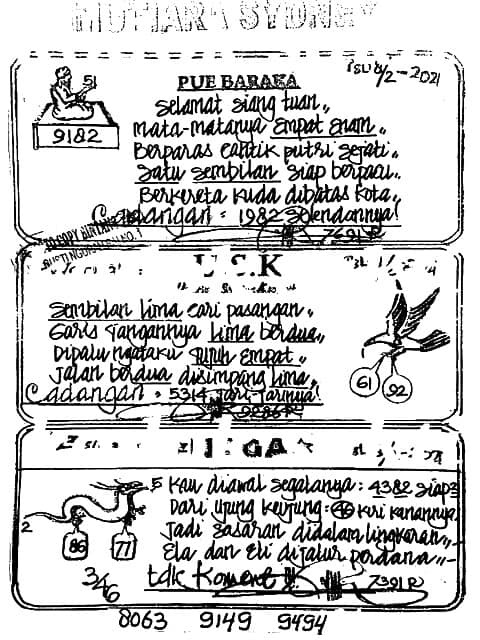 MUTIARA SYDNEY
PUE BARAKA
51
9182
Selamat siang tuan,,
Mata-matanya empat enam,,
Berparas cantik putri sejati,,
Satu sembilan siap berpacu,,
Berkereta kuda dibatas kota,,
Cadangan = 1982 Selendannya!
7691 R
U.S.K
Sembilan lima cari pasangan,,
Garis tangannya lima berdua,,
Dipalu ngataku tujuh empat,,
Jalan berdua disimpang lima,,
Cadangan = 5314 Jari-Jarinya!
9286 R
61
92
5 Kau diawal segalanya : 4382 siap3
Dari ujung keujung : 46 kiri kanannya,
Jadi sasaran didalam lingkaran,,
Ela dan Eli dijalur perdana,,
tdk Koment !!
7391 R
2
86
77
346
8063 9149 9494